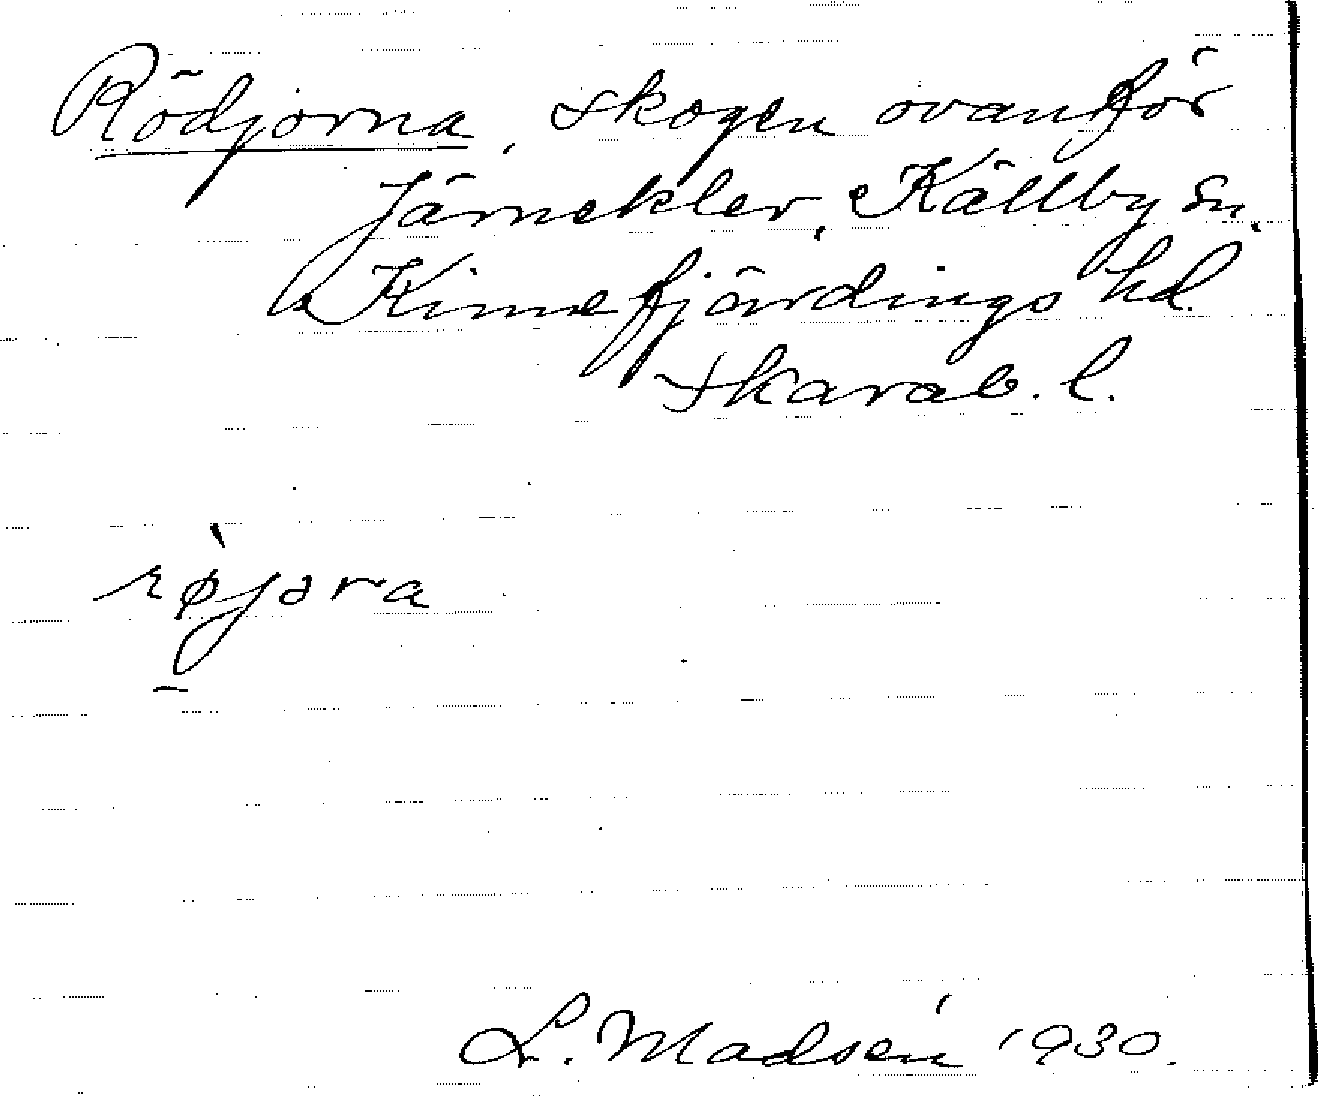 Rödjorna, skogen ovanför
Järnekler, Källby sn.
Kinnefjärdings hd.
Skarab. l.
rø̀jɔra
L. Madsén 1930.